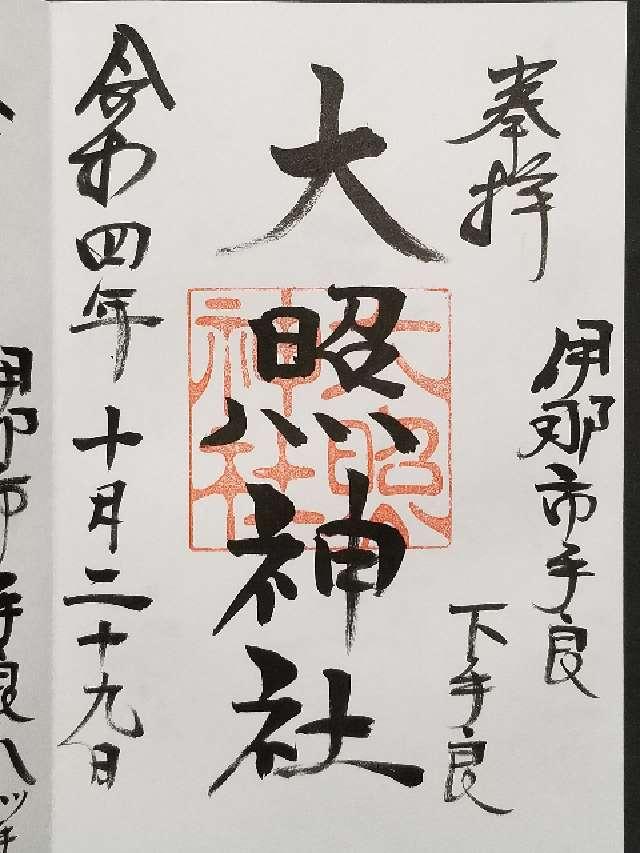 奉拝
伊那市手良
下手良
大照神社
大照神社
令和四年十月二十九日
伊那市手良八ツ手